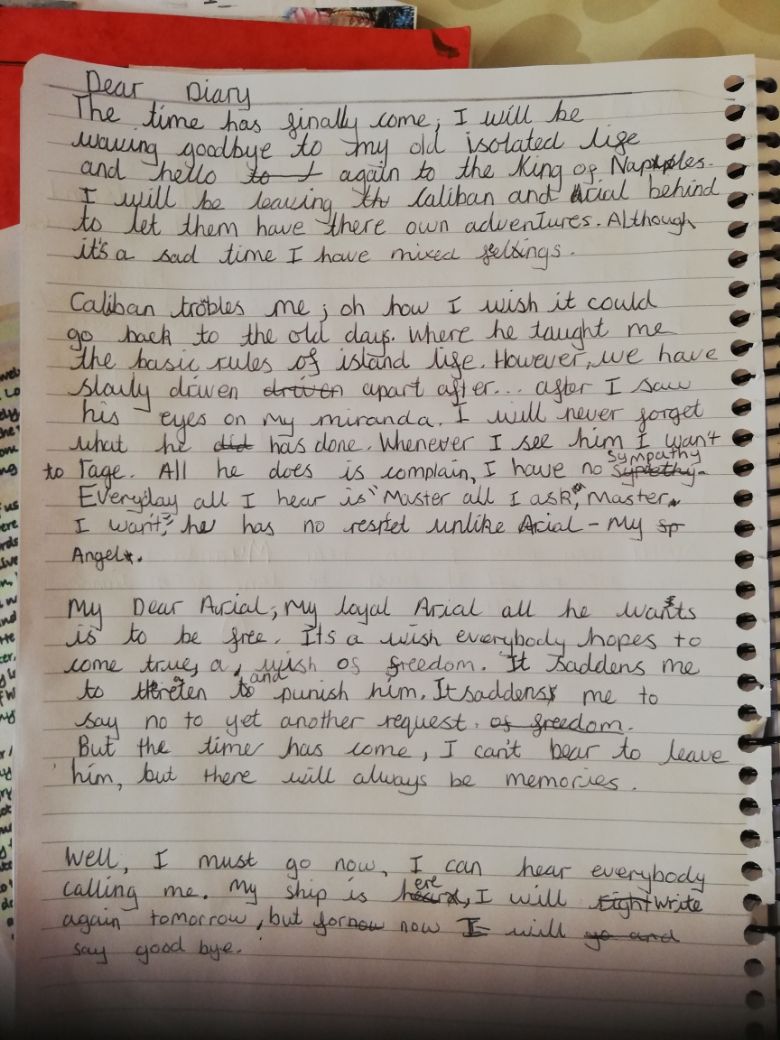 Dear Diary
The time has finally come, I will be
waving goodbye to my old isolated life
and hello to I again to the King of Naples.
I will be leaving th Caliban and Arial behind
to let them have there own adventures. Although
it's a sad time I have mixed feelings.
Caliban trobles me; oh how I wish it could
go back to the old days. Where he taught me
the basic rules of island life. However, we have
slowly driven driven apart after... after I saw
his eyes on my miranda. I will never forget
what he did has done. Whenever I see him I wan't
to rage. All he does is complain, I have no sympathy
Everyday all I hear is "Master all I ask", "Master
I want", he has no respet unlike Arial - My sp
Angel.
My Dear Arial, My loyal Arial all he wants
is to be free. Its a wish everybody hopes to
come true, a wish of freedom. It saddens me
to threaten and punish him. It saddens me to
say no to yet another request. of freedom.
But the time has come, I can't bear to leave
him, but there will always be memories.
Well, I must go now, I can hear everybody
calling me. My ship is here, I will right write
again tomorrow, but for now now I will go and
say good bye.